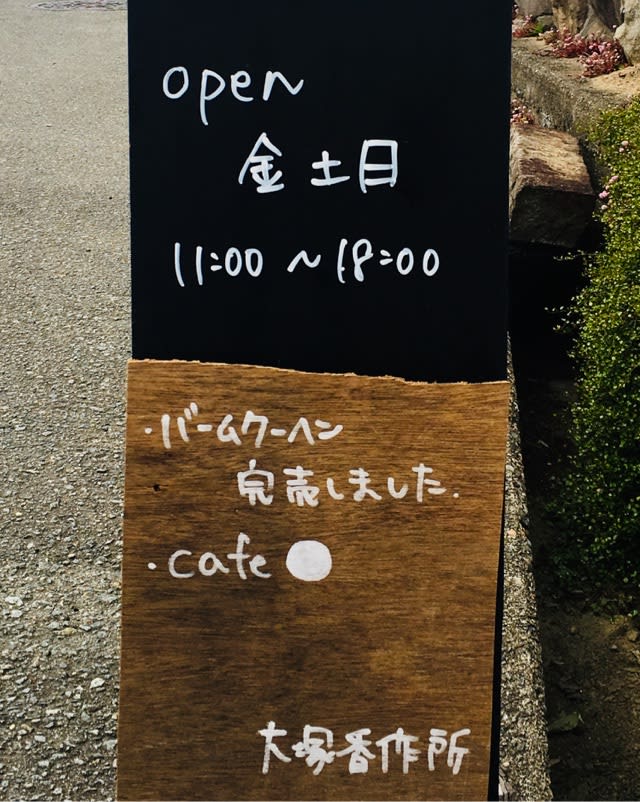 open
金土日
11:00 ~ 18:00
・バームクーヘン
完売しました.
・cafe ●
大塚香作所